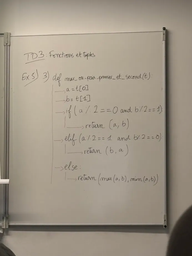 TD3 Fonctions et tuples
Ex 5) 3) def max_m_mn_prems_et_second(t)
a = t[0]
b = t[1]
if (a % 2 == 0 and b % 2 == 0)
return (a, b)
elif (a % 2 == and b % 2 == 0)
return (b, a)
else
return (max(a, b), min(a, b))